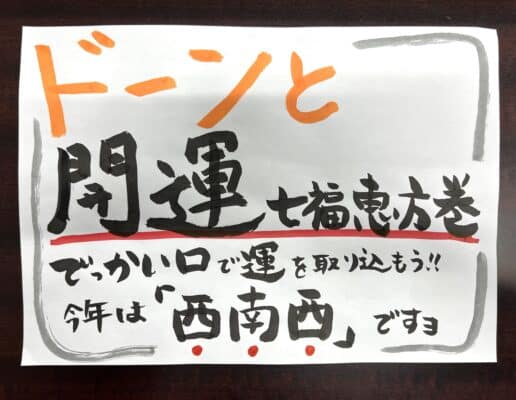 ドーンと
開運 七福恵方巻
でっかい口で運を取り込もう!!
今年は「西南西」ですョ